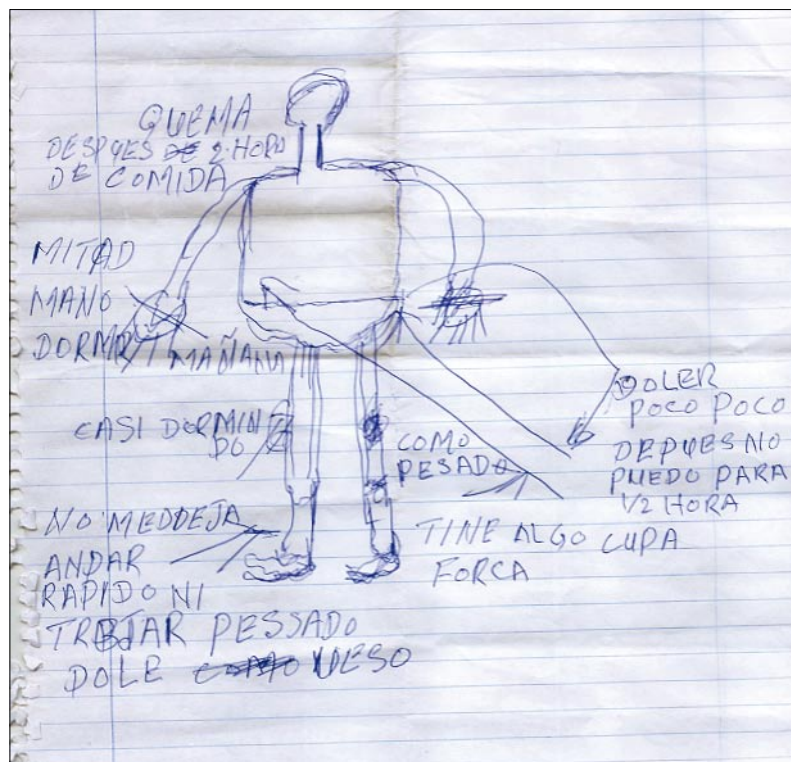 QUEMA
DESPUES DE 2 HORA
DE COMIDA
MITAD
MANO
DORMR
MAÑANA
CASI DORMIN
DO
COMO
PESADO
DOLER
POCO POCO
DEPUES NO
PUEDO PARA
1/2 HORA
NO MEDDEJA
ANDAR
RAPIDO NI
TRBJAR PESSADO
DOLE COMO UESO
TINE ALGO CUPA
FORCA